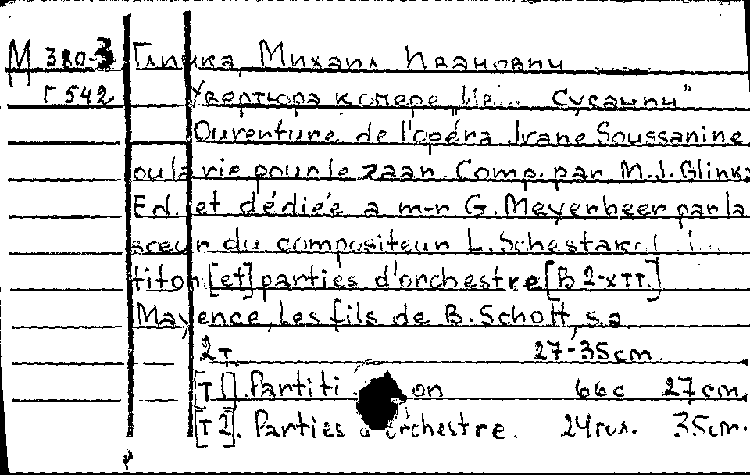 М 380-3 Глинка, Михаил Иванович
Г 542 Увертюра к опере „Ив... Сусанин"
Ouverture de l'opéra Ivane Soussanine
ou la vie pour le zaar. Comp. par M.I. Glinka
Ed. et dédiée a m-r G. Meyerbeer par la
sœur du compositeur L. Schestako
titon [et] parties d'orchestre [В 2-х тт.]
Mayence, Les fils de B. Schott, s.a
2т 27-35cm
[Т 1]. Partiti on 66c 27cm.
[Т 2]. Parties d'orchestre. 35cm.